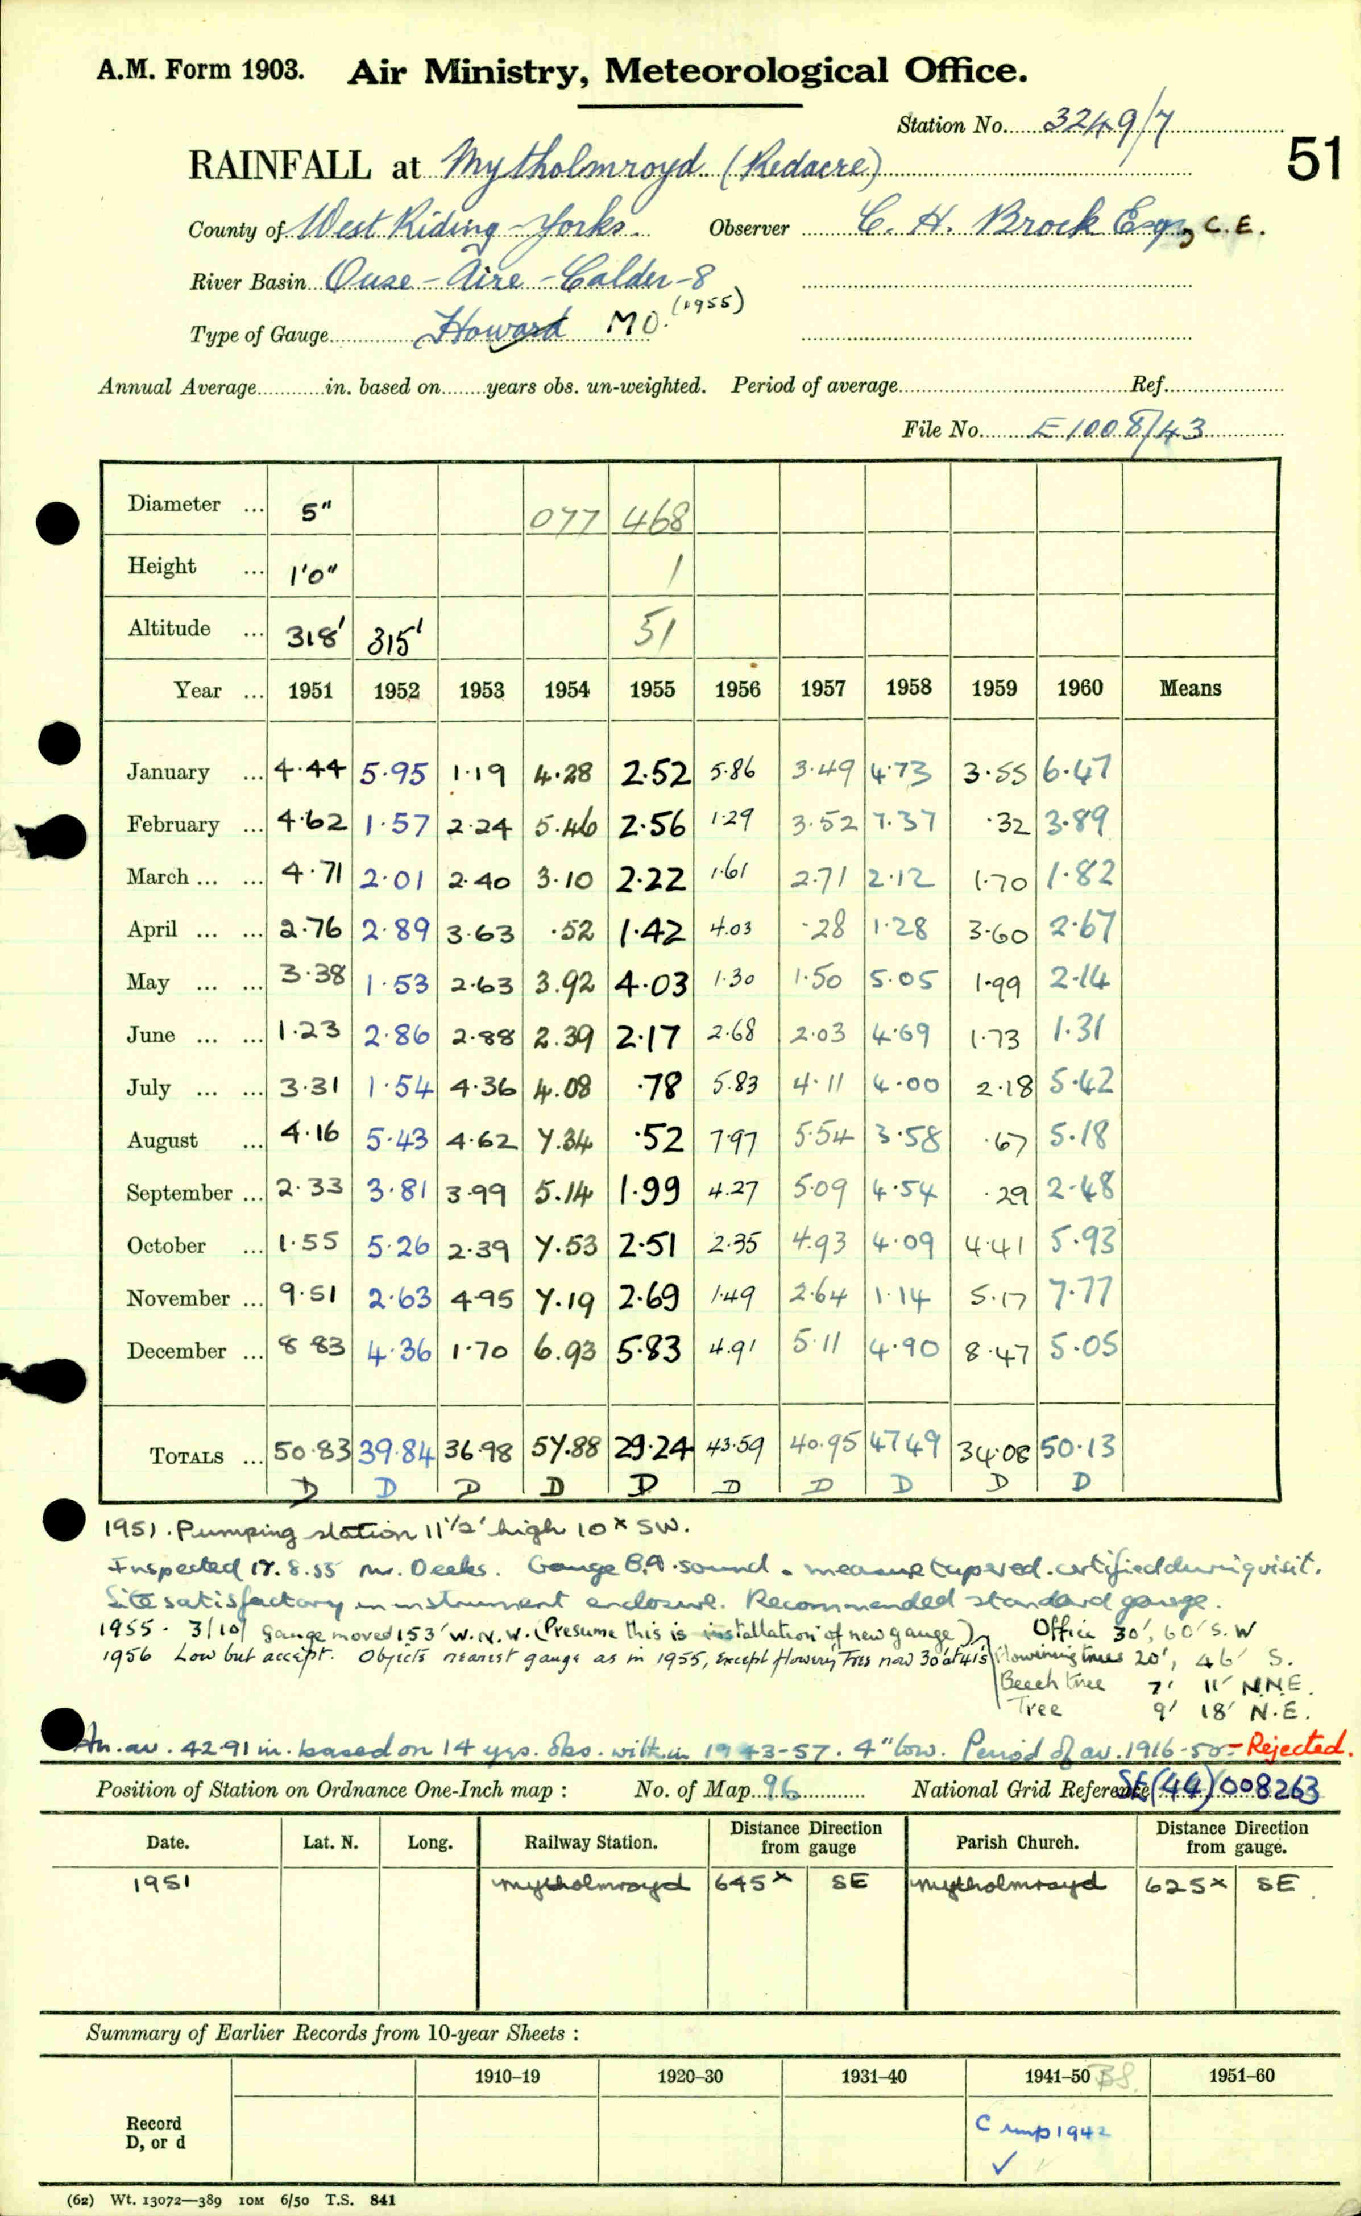 A.M. Form 1903. Air Ministry, Meteorological Office.
Station No. 3249/7
51
RAINFALL at Mytholmroyd (Redacre)
County of West Riding - Yorks. Observer C. H. Brock Esq, C.E.
River Basin Ouse - Aire - Calder - 8
Type of Gauge Howard MO. (1955)
Annual Average in. based on years obs. un-weighted. Period of average Ref.
File No. E1008/43
Diameter ... 5" 077 468
Height ... 1'0" 1
Altitude ... 318' 315' 51
Year ... 1951 1952 1953 1954 1955 1956 1957 1958 1959 1960 Means
January ... 4.44 5.95 1.19 4.28 2.52 5.86 3.49 4.73 3.55 6.47
February ... 4.62 1.57 2.24 5.46 2.56 1.29 3.52 7.37 .32 3.89
March ... ... 4.71 2.01 2.40 3.10 2.22 1.61 2.71 2.12 1.70 1.82
April ... ... 2.76 2.89 3.63 .52 1.42 4.03 .28 1.28 3.60 2.67
May ... ... 3.38 1.53 2.63 3.92 4.03 1.30 1.50 5.05 1.99 2.14
June ... ... 1.23 2.86 2.88 2.39 2.17 2.68 2.03 4.69 1.73 1.31
July ... ... 3.31 1.54 4.36 4.08 .78 5.83 4.11 4.00 2.18 5.42
August ... 4.16 5.43 4.62 7.34 .52 7.97 5.54 3.58 .67 5.18
September ... 2.33 3.81 3.99 5.14 1.99 4.27 5.09 4.54 .29 2.48
October ... 1.55 5.26 2.39 7.53 2.51 2.35 4.93 4.09 4.41 5.93
November ... 9.51 2.63 4.95 7.19 2.69 1.49 2.64 1.14 5.17 7.77
December ... 8.83 4.36 1.70 6.93 5.83 4.91 5.11 4.90 8.47 5.05
TOTALS ... 50.83 39.84 36.98 57.88 29.24 43.59 40.95 47.49 34.08 50.13
D D D D D D D D D D
1951. Pumping station 11½' high 10x SW.
Inspected 17.8.55 Mr. Deeks. Gauge sound. measure tapered. certified during visit.
Site satisfactory in instrument enclosure. Recommended standard gauge.
1955. 3/10 gauge moved 153' W.N.W. (Presume this is installation of new gauge) Office 30', 60' S.W
1956 Low but accept. Objects nearest gauge as in 1955, except flowering Trees now 30' at 41'S Flowering trees 20', 46' S.
Beech tree 7' 11' N.N.E.
Tree 9' 18' N.E.
An. av. 42.91 in. based on 14 yrs. obs. within 1943-57. 4" low. Period of av. 1916-50 - Rejected.
Position of Station on Ordnance One-Inch map : No. of Map 96 National Grid Reference SE(44)008263
Date. Lat. N. Long. Railway Station. Distance Direction from gauge Parish Church. Distance Direction from gauge.
1951 Mytholmroyd 645x SE Mytholmroyd 625x SE
Summary of Earlier Records from 10-year Sheets :
1910–19 1920–30 1931–40 1941–50 1951–60
Record D, or d
C 1942
✓
(62) Wt. 13072—389 10M 6/50 T.S. 841